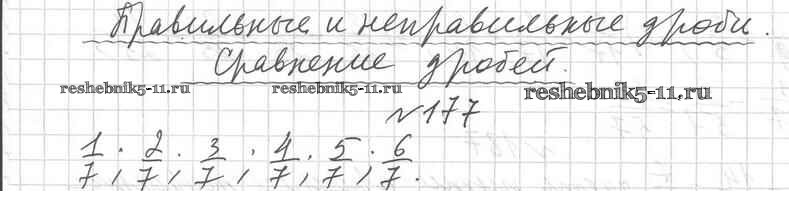 Правильные и неправильные дроби.
Сравнение дробей.
reshebnik5-11.ru reshebnik5-11.ru reshebnik5-11.ru
№177
1/7; 2/7; 3/7; 4/7; 5/7; 6/7.